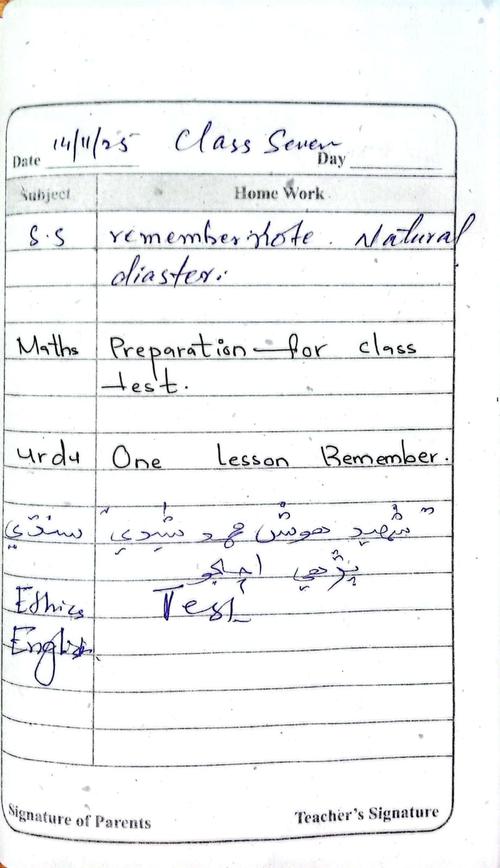 Date 14/11/25 Class Seven Day
Subject Home Work
S.S remember note. Natural
diaster.
Maths Preparation for class
test.
Urdu One Lesson Remember.
سنڌي "شهيد هوش محمد شيدي"
پڙهي اچجو
Ethics Test
English
Signature of Parents Teacher's Signature